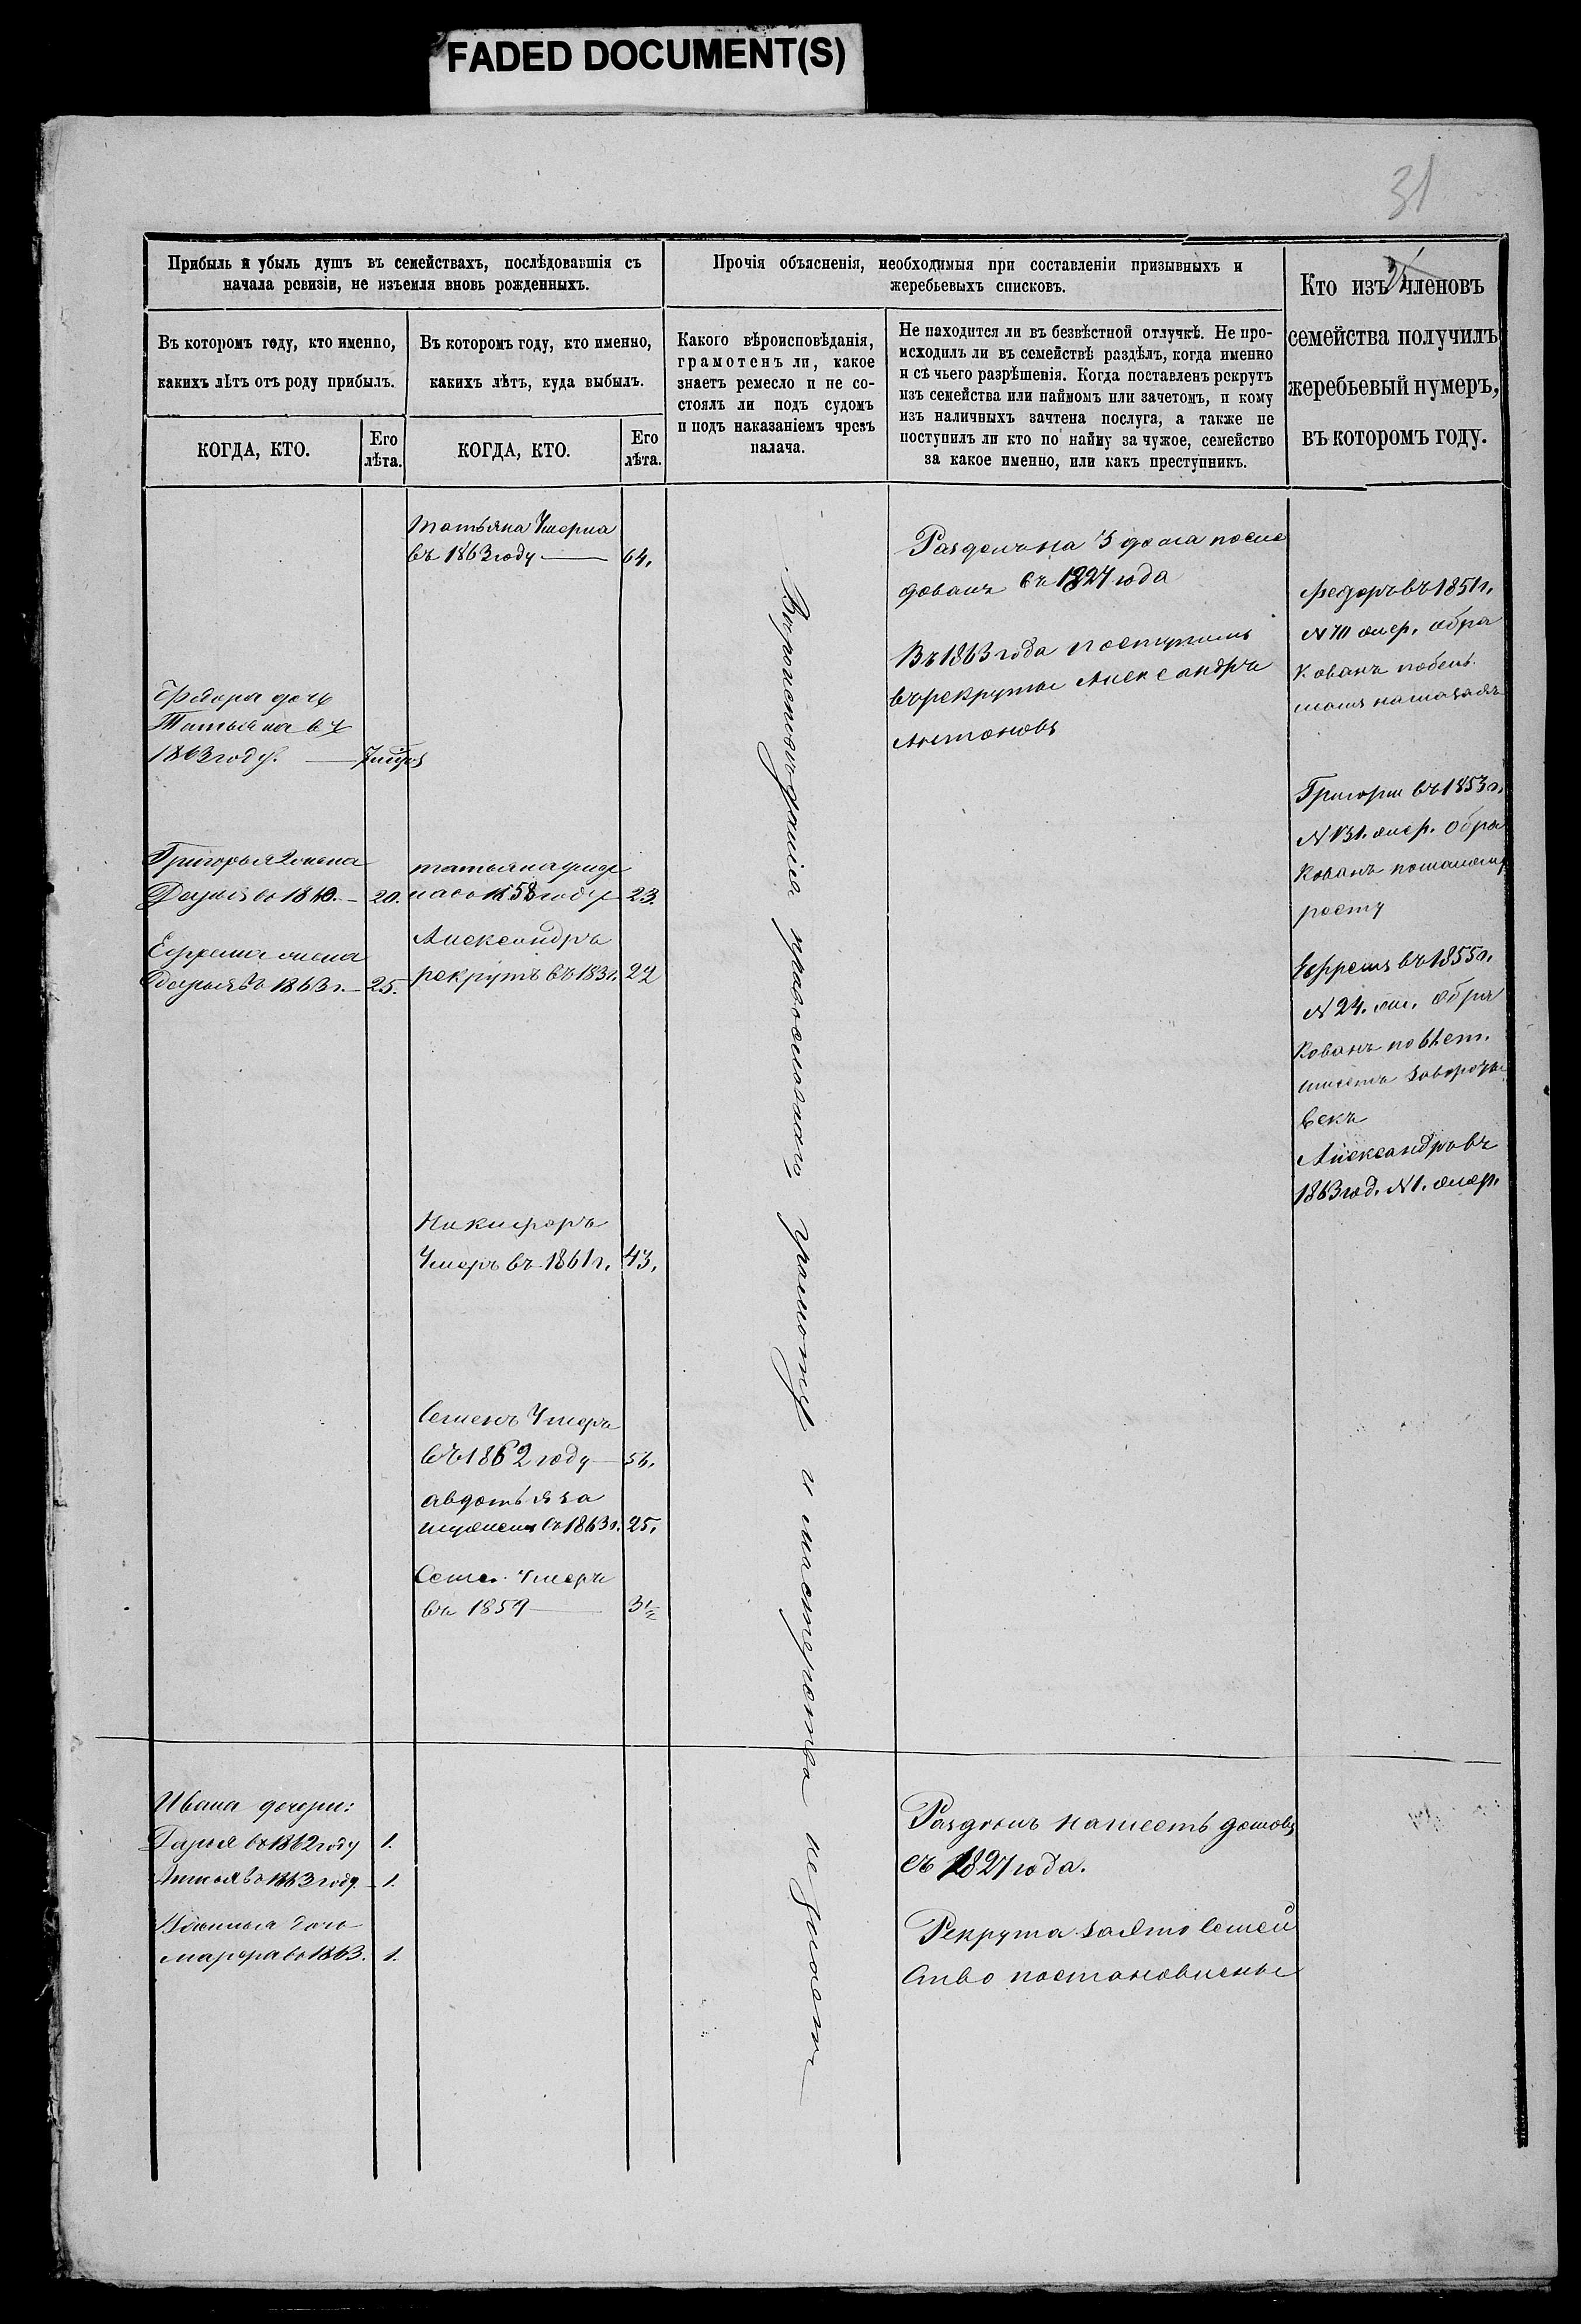 FADED DOCUMENT(S)
31
Прибыль и убыль душъ въ семействахъ, послѣдовавшія съ
начала ревизіи, не изъемля вновь рожденныхъ.
Въ которомъ году, кто именно,
какихъ лѣтъ отъ роду прибылъ.
КОГДА, КТО.
Его
лѣта.
Въ которомъ году, кто именно,
какихъ лѣтъ, куда выбылъ.
КОГДА, КТО.
Его
лѣта.
Прочія объясненія, необходимыя при составленіи призывныхъ и
жеребьевыхъ списковъ.
Какого вѣроисповѣданія,
грамотенъ ли, какое
знаетъ ремесло и не со-
стоялъ ли подъ судомъ
и подъ наказаніемъ чрезъ
палача.
Не находится ли въ безвѣстной отлучкѣ. Не про-
исходилъ ли въ семействѣ раздѣлъ, когда именно
и съ чьего разрѣшенія. Когда поставленъ рекрутъ
изъ семейства или наймомъ или зачетомъ, и кому
изъ наличныхъ зачтена послуга, а также не
поступилъ ли кто по найму за чужое, семейство
за какое именно, или какъ преступникъ.
Кто изъ членовъ
семейства получилъ
жеребьевый нумеръ,
въ которомъ году.
Федора дочь
Татьяна въ
1863 году.
Григорья 2 жена
Дарья
20.
Ефрема жена
Дарья въ 1863 г. 25.
Ивана дочери:
Дарья въ 1862 году 1.
въ 1863 году. 1.
дочь
марфа въ 1863. 1.
Татьяна Умерла
въ 1863 году 64.
татьяна
1858 году 23.
Александръ
рекрутъ въ 22
Никифоръ
Умеръ въ 1861 г. 43.
Семенъ Умеръ
въ 1862 году 56.
авдотья за
мужемъ въ 1863 г. 25.
Семен. Умеръ
въ 1859 3½
Вероисповѣданія православнаго грамоту и мастерства не знаетъ
Разделъ на 3 дома после
дованъ съ 1827 года
Въ 1863 года поступилъ
въ рекруты Александръ
Антоновъ
Разделъ на шесть домовъ
съ 1827 года.
Рекрута за это Семей
ство поставлены
Федоръ въ 1851 г.
жер. обра
кованъ
Григорій въ 1853 г.
N 131. жер. обра
кованъ по малому
росту
Ефремъ въ 1855 г.
N 24. обра
кованъ
Александръ въ
1863 год. N 1. жер.